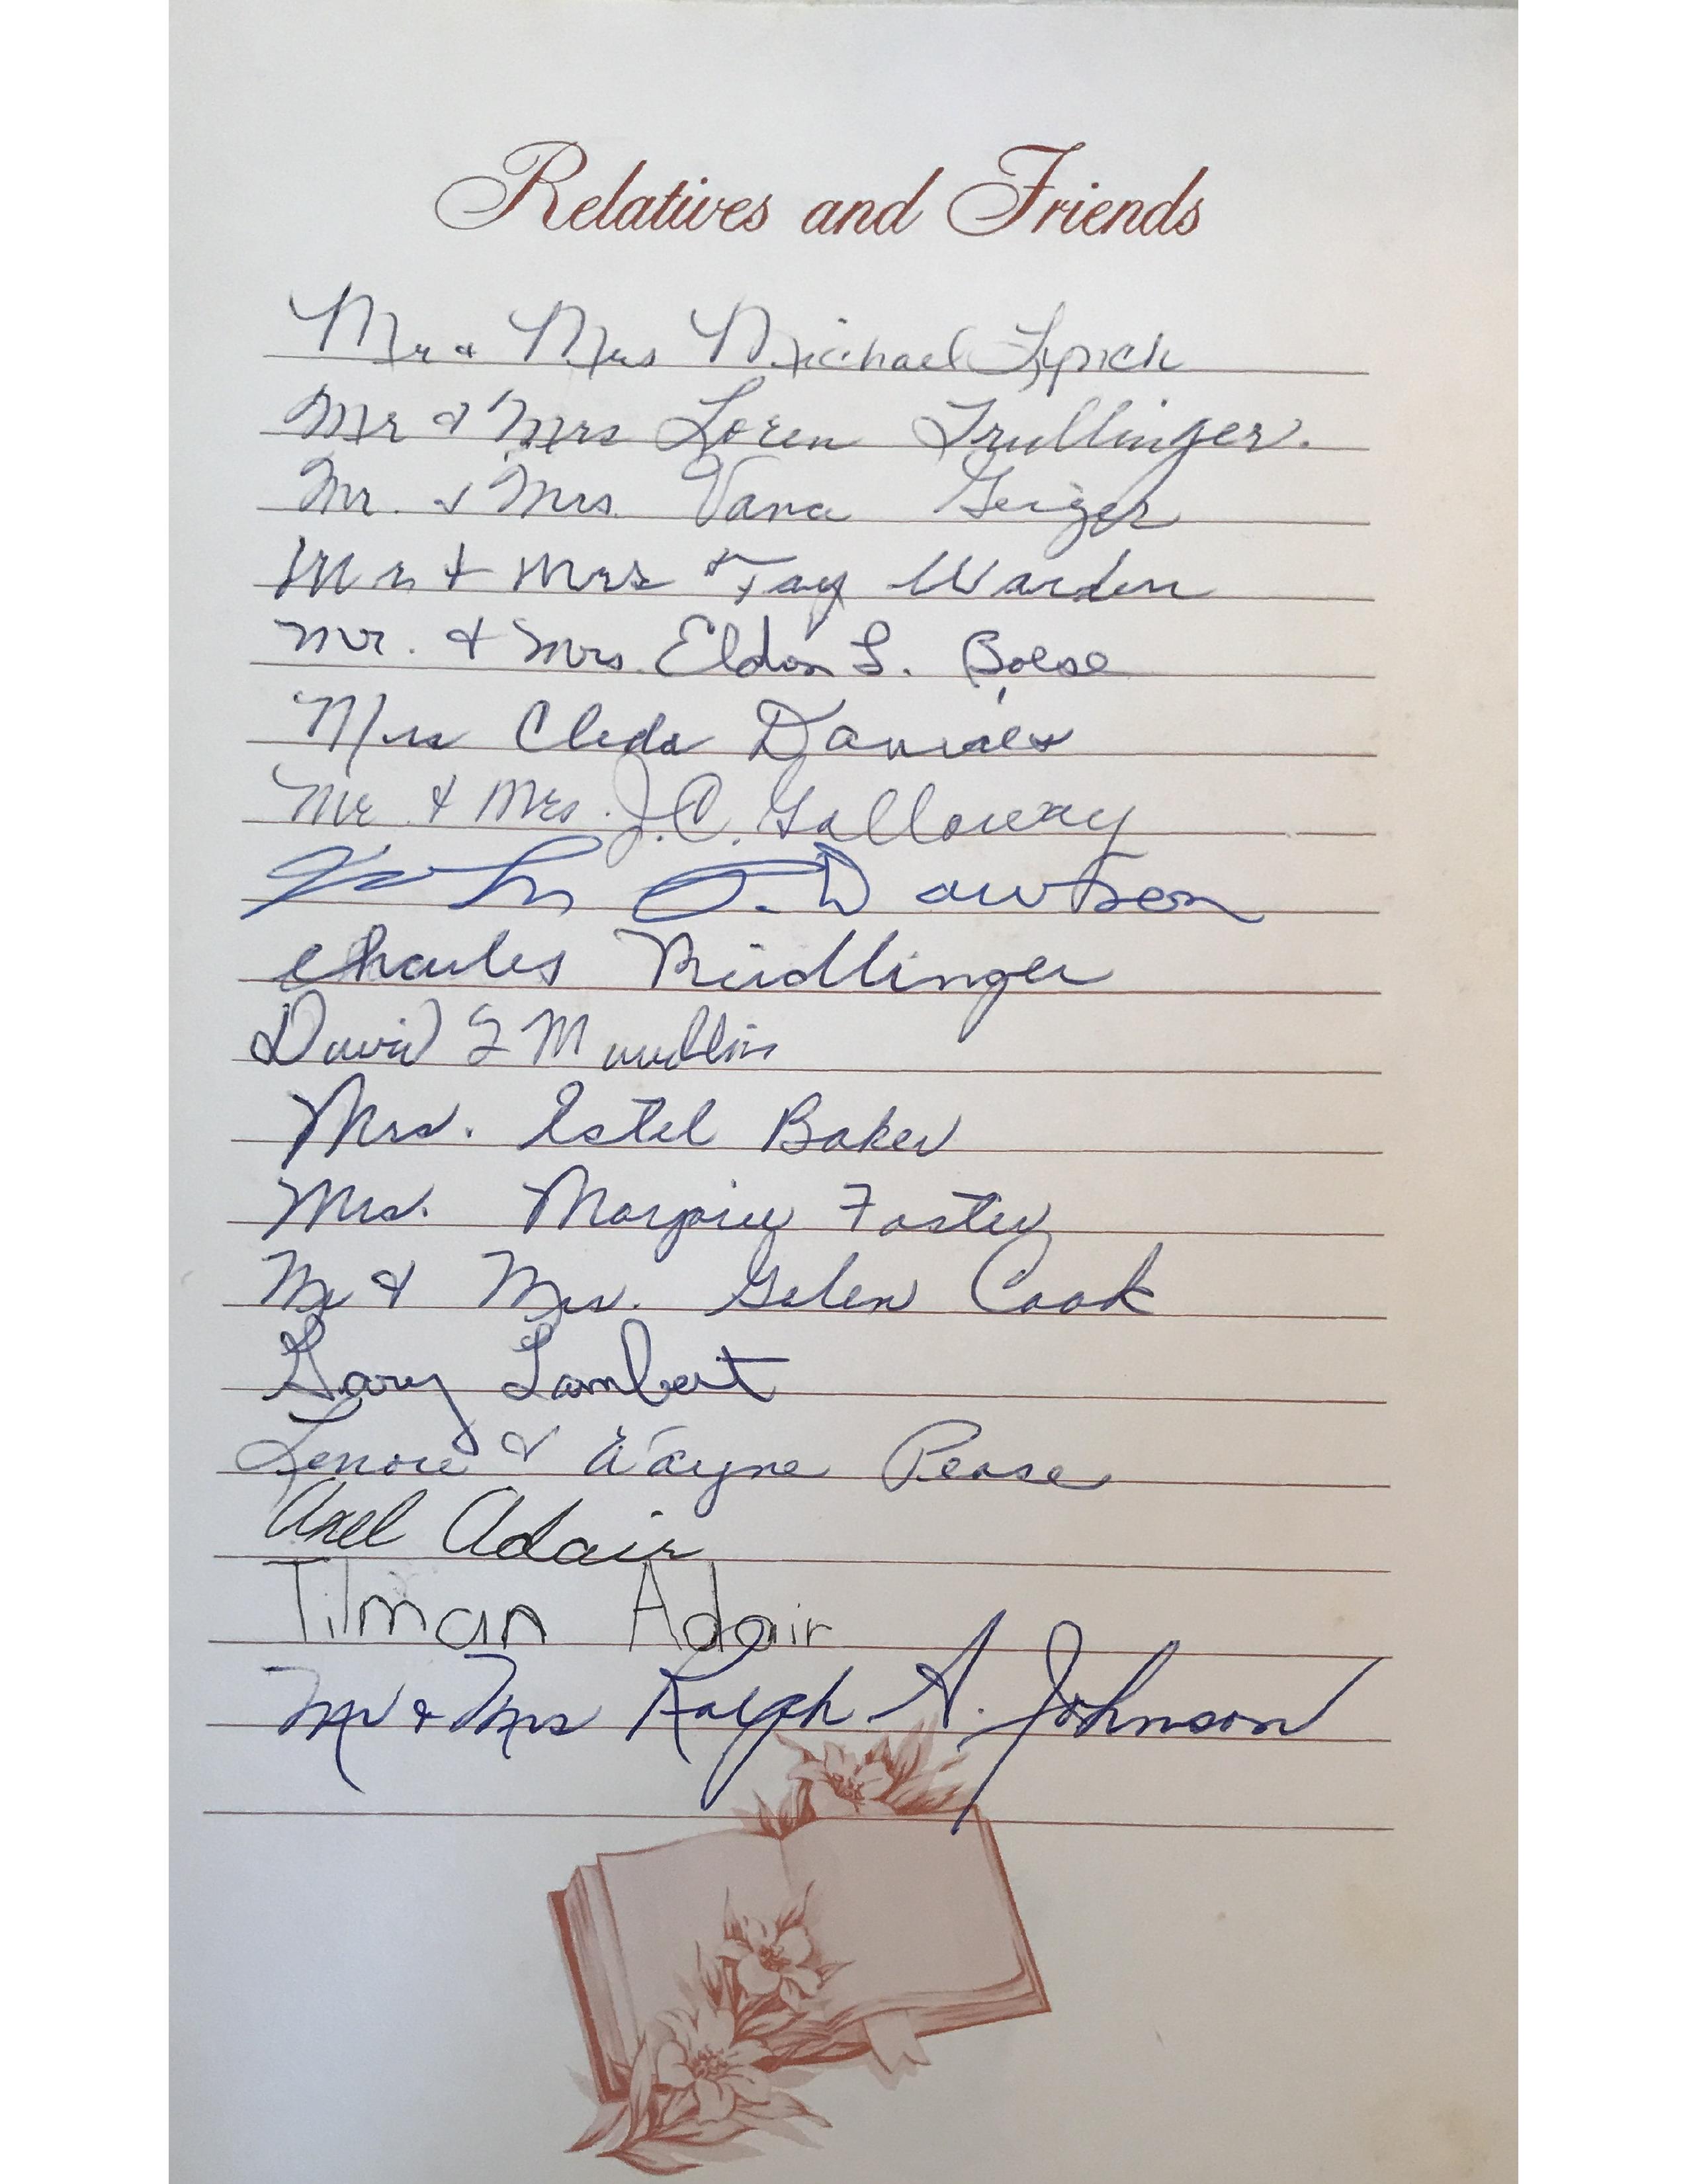 Relatives and Friends
Mr & Mrs Michael Lynch
Mr & Mrs Loren Trullinger.
Mr. & Mrs. Vana Geiger
Mr + Mrs Fay Warden
Mr. & Mrs. Eldon L. Boese
Mrs Cleda Daniels
Mr. & Mrs. J.C. Galloway
John O. Dawson
Charles Neidlinger
David L Mauldin
Mrs. Estel Baker
Mrs. Marjorie Foster
Mr & Mrs. Galen Cook
Gary Lambert
Lenore & Wayne Pease
Axel Adair
Tilman Adair
Mr & Mrs Ralph A. Johnson